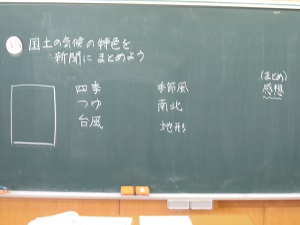 国土の気候の特色を
新聞にまとめよう
四季
つゆ
台風
季節風
南北
地形
(まとめ)
感想